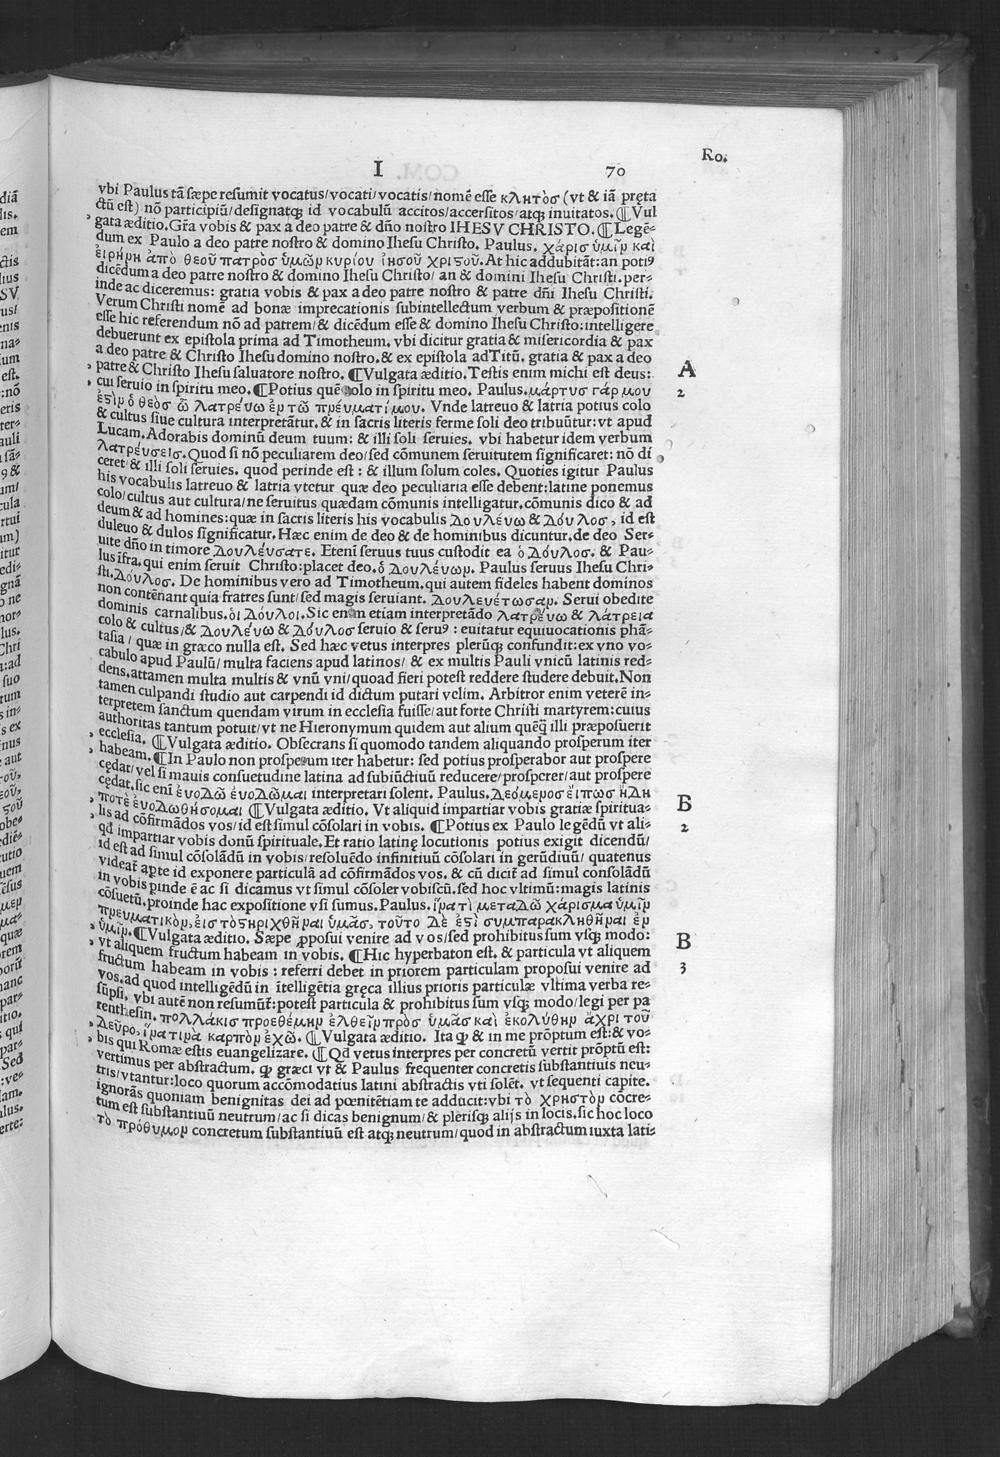 Ro.
I 70
vbi Paulus tã sæpe resumit vocatus/vocati/vocatis/nomẽ esse κλητὸσ (vt & iã pręta
ctũ est) nõ participiũ/designatqꝫ id vocabulũ accitos/accersitos/atqꝫ inuitatos. ¶Vul
gata æditio. Gr̃a vobis & pax a deo patre & dño nostro IHESV CHRISTO. ¶Legẽ-
dum ex Paulo a deo patre nostro & domino Ihesu Christo. Paulus. χάρισ ὑμῖν καὶ
ἐιρήνη ἀπὸ θεοῦ πατρὸσ ὑμῶν κυρίου ἰησοῦ χριστοῦ. At hic addubitãt: an potiꝰ
dicẽdum a deo patre nostro & domino Ihesu Christo/ an & domini Ihesu Christi. per-
inde ac diceremus: gratia vobis & pax a deo patre nostro & patre dñi Ihesu Christi.
Verum Christi nomẽ ad bonæ imprecationis subintellectum verbum & præpositionẽ
esse hic referendum nõ ad patrem/ & dicẽdum esse & domino Ihesu Christo: intelligere
debuerunt ex epistola prima ad Timotheum. vbi dicitur gratia & misericordia & pax
a deo patre & Christo Ihesu domino nostro. & ex epistola ad Titũ. gratia & pax a deo
patre & Christo Ihesu saluatore nostro. ¶Vulgata æditio. Testis enim michi est deus: A
cui seruio in spiritu meo. ¶Potius quẽ colo in spiritu meo. Paulus. μάρτυσ γάρ μου 2
ἐστὶν ὁ θεὸσ ᾧ λατρέυω ἐν τῷ πνέυματί μου. Vnde latreuo & latria potius colo
& cultus siue cultura interpretãtur. & in sacris literis ferme soli deo tribuũtur: vt apud
Lucam. Adorabis dominũ deum tuum: & illi soli seruies. vbi habetur idem verbum
λατρέυσεισ. Quod si nõ peculiarem deo/sed cõmunem seruitutem significaret: nõ di
ceret & illi soli seruies. quod perinde est: & illum solum coles. Quoties igitur Paulus
his vocabulis latreuo & latria vtetur quæ deo peculiaria esse debent: latine ponemus
colo/cultus aut cultura/ne seruitus quædam cõmunis intelligatur. cõmunis dico & ad
deum & ad homines: quæ in sacris literis his vocabulis Δουλέυω & Δόυλοσ, id est
duleuo & dulos significatur. Hæc enim de deo & de hominibus dicuntur. de deo Ser-
uite dño in timore Δουλέυσατε. Etenĩ seruus tuus custodit ea ὁ Δόυλοσ. & Pau-
lus ĩfra. qui enim seruit Christo: placet deo. ὁ Δουλέυων. Paulus seruus Ihesu Chri-
sti. Δόυλοσ. De hominibus vero ad Timotheum. qui autem fideles habent dominos
non contẽnant quia fratres sunt/sed magis seruiant. Δουλευέτωσαν. Serui obedite
dominis carnalibus. ὁι Δόυλοι. Sic enim etiam interpretãdo λατρέυω & λάτρεια
colo & cultus/& Δουλέυω & Δόυλοσ seruio & seruꝰ: euitatur equiuocationis phã-
tasia/ quæ in græco nulla est. Sed hæc vetus interpres plerũqꝫ confundit: ex vno vo-
cabulo apud Paulũ/ multa faciens apud latinos/ & ex multis Pauli vnicũ latinis red-
dens. attamen multa multis & vnũ vni/quoad fieri potest reddere studere debuit. Non
tamen culpandi studio aut carpendi id dictum putari velim. Arbitror enim veterẽ in-
terpretem sanctum quendam virum in ecclesia fuisse/aut forte Christi martyrem: cuius
authoritas tantum potuit/vt ne Hieronymum quidem aut alium quẽq̃ illi præposuerit
ecclesia. ¶Vulgata æditio. Obsecrans si quomodo tandem aliquando prosperum iter
habeam. ¶In Paulo non prosperum iter habetur: sed potius prosperabor aut prospere
cędat/vel si mauis consuetudine latina ad subiũctiuũ reducere/prosperer/aut prospere
cędat. sic enĩ ἐυοΔῶ ἐυοΔῶμαι interpretari solent. Paulus. Δεόμενοσ ἔιπωσ ἤΔη
ποτὲ ἐυοΔωθήσομαι ¶Vulgata æditio. Vt aliquid impartiar vobis gratiæ spiritua- B
lis ad cõfirmãdos vos/id est simul cõsolari in vobis. ¶Potius ex Paulo legẽdũ vt ali- 2
qđ impartiar vobis donũ spirituale. Et ratio latinę locutionis potius exigit dicendũ/
id est ad simul cõsolãdũ in vobis/resoluẽdo infinitiuũ cõsolari in gerũdiuũ/ quatenus
videat̃ apte id exponere particulã ad cõfirmãdos vos. & cũ dicit̃ ad simul consolãdũ
in vobis pinde ẽ ac si dicamus vt simul cõsoler vobiscũ. sed hoc vltimũ: magis latinis
cõsuetũ. proinde hac expositione vsi sumus. Paulus. ἵνα τὶ μεταΔῶ χάρισμα ὑμῖν
πνευματικὸν, ἐισ τὸ στηριχθῆναι ὑμᾶσ, τοῦτο Δὲ ἐστὶ συμπαρακληθῆναι ἐν
ὑμῖν. ¶Vulgata æditio. Sæpe ꝓposui venire ad vos/sed prohibitus sum vsqꝫ modo: B
vt aliquem fructum habeam in vobis. ¶Hic hyperbaton est. & particula vt aliquem
fructum habeam in vobis: referri debet in priorem particulam proposui venire ad 3
vos. ad quod intelligẽdũ in ĩtelligẽtia gręca illius prioris particulæ vltima verba re-
sũpsi. vbi autẽ non resumũt̃: potest particula & prohibitus sum vsqꝫ modo/legi per pa
renthesin. πολλάκισ προεθέμην ἐλθεῖν πρὸσ ὑμᾶσ καὶ ἐκολύθην ἄχρι τοῦ
Δεῦρο, ἵνα τινὰ καρπὸν ἔχω. ¶Vulgata æditio. Ita ꝙ & in me prõptum est: & vo-
bis qui Romæ estis euangelizare. ¶Qđ vetus interpres per concretũ vertit prõptũ est:
vertimus per abstractum. ꝙ græci vt & Paulus frequenter concretis substantiuis neu-
tris/vtantur: loco quorum accõmodatius latini abstractis vti solẽt. vt sequenti capite.
ignorãs quoniam benignitas dei ad pœnitẽtiam te adducit: vbi τὸ χρηστὸν cõcre-
tum est substantiuũ neutrum/ac si dicas benignum/& plerisqꝫ alijs in locis. sic hoc loco
τὸ πρόθυμον concretum substantiuũ est atqꝫ neutrum/quod in abstractum iuxta lati-